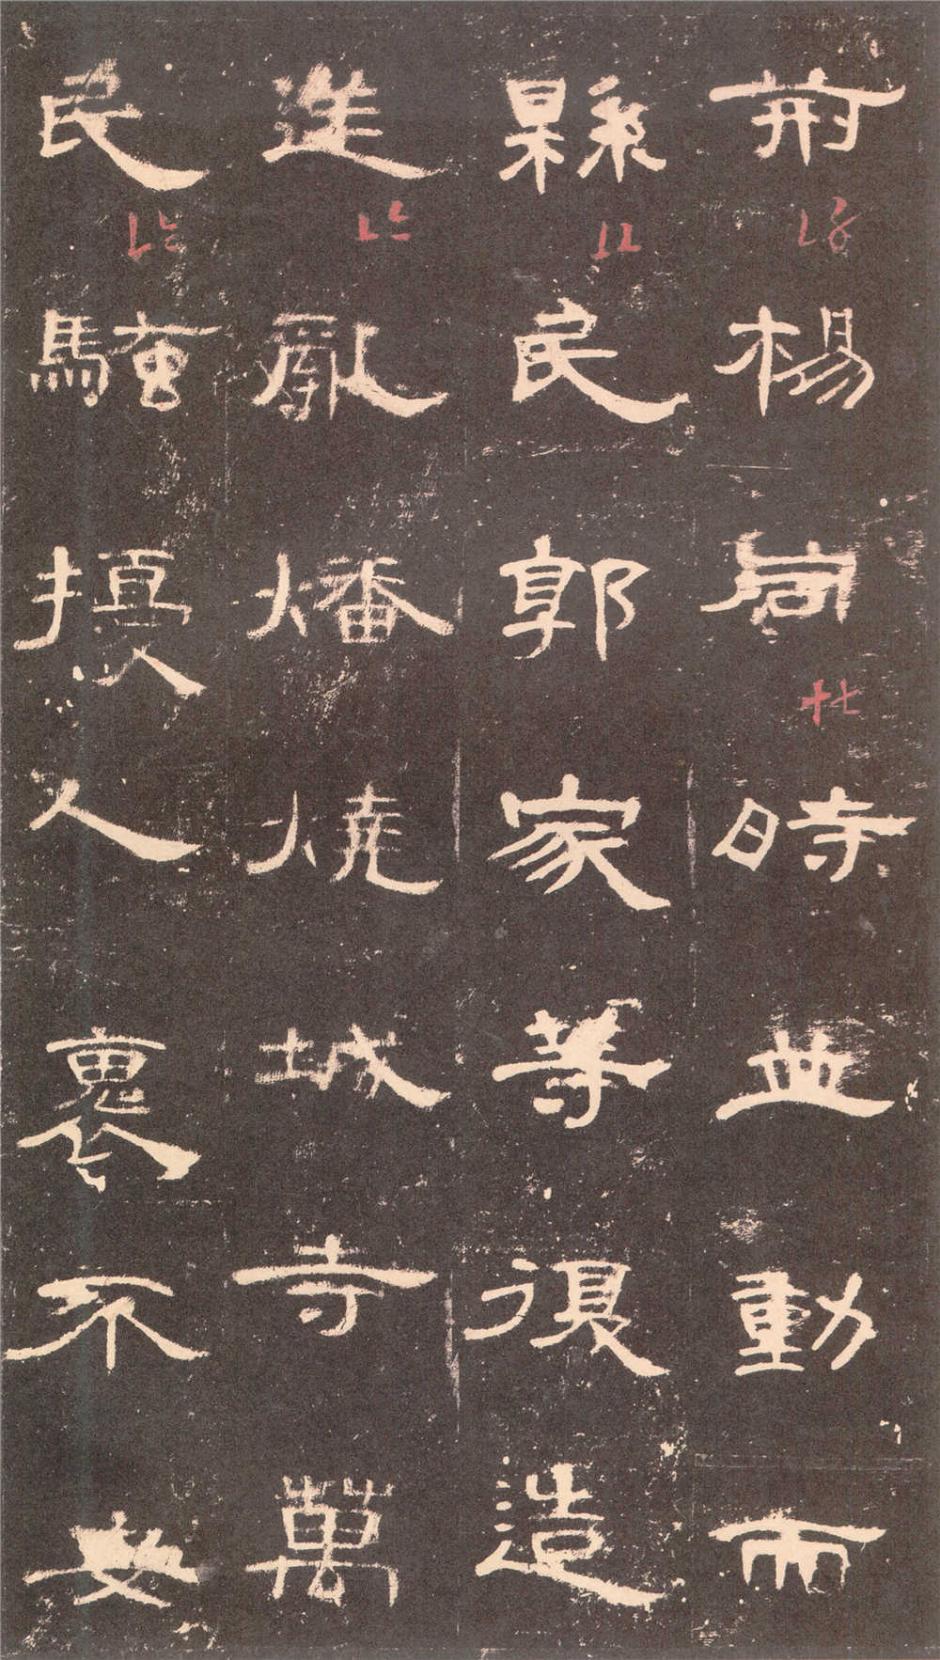 荊楊同時並動而
縣民郭家等復造
逆亂燔燒城寺萬
民騷擾人褱不安